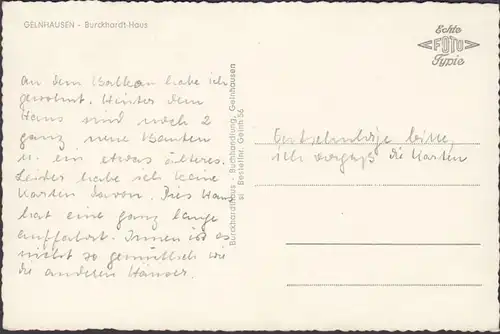 GELNHAUSEN - Burckhardt-Haus
Echte
FOTO
Typie
An dem Balkon habe ich
gewohnt. Hinter dem
Haus sind noch 2
ganz neue Bauten
u. ein etwas älteres.
Leider habe ich keine
Karten davon. Dies Haus
hat eine ganz lange
auffahrt. Innen ist es
nicht so gemütlich wie
die anderen Häuser.
Burckhardthaus - Buchhandlung, Gelnhausen
sl Bestellnr. Gelnh 56
Entschuldige bitte,
ich vergaß die Karten